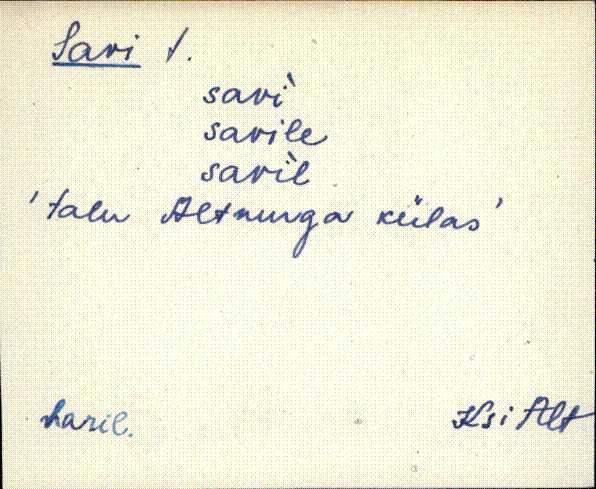 Savi t.
savì
savile
savìl
'talu Altnurga külas'
haril.
Ksi Alt